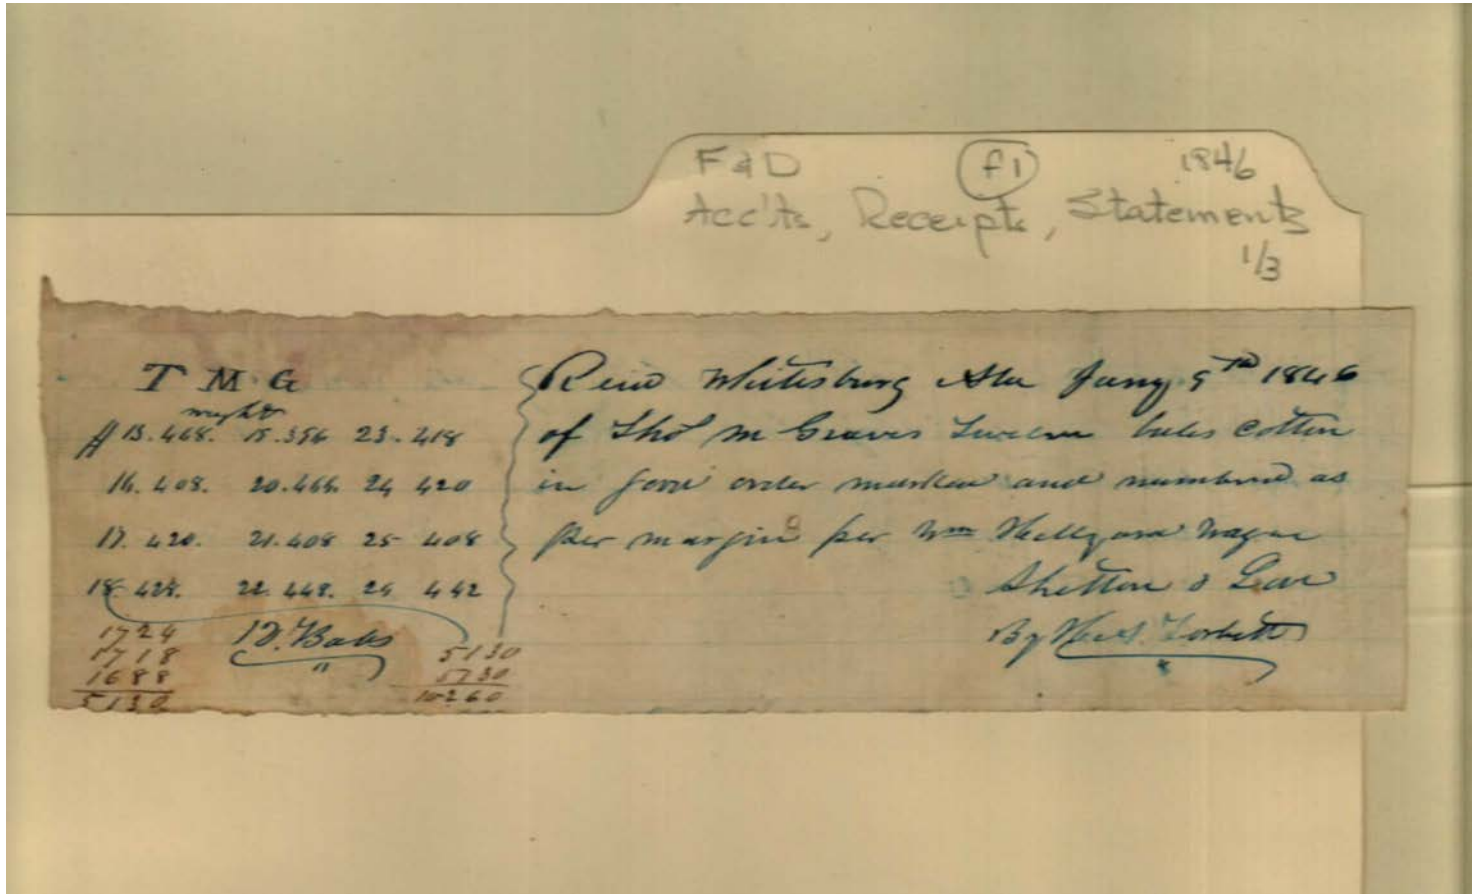 F & D f1 1846
Acc'ts, Receipts, Statements
1/3
T M G
weight
# 15.468. 19.356 23.418
16.408. 20.466. 24 420
17. 420. 21.408 25 408
18. 428. 22.448. 26 442
1724
1718
1688
5130
12. Bales
5130
5130
10260
Recd Whitesburg Ala Jany 9th 1846
of Thos M Graves Twelve bales cotton
in good order marked and numbered as
per margin per Wm wagon
Shelton &
By